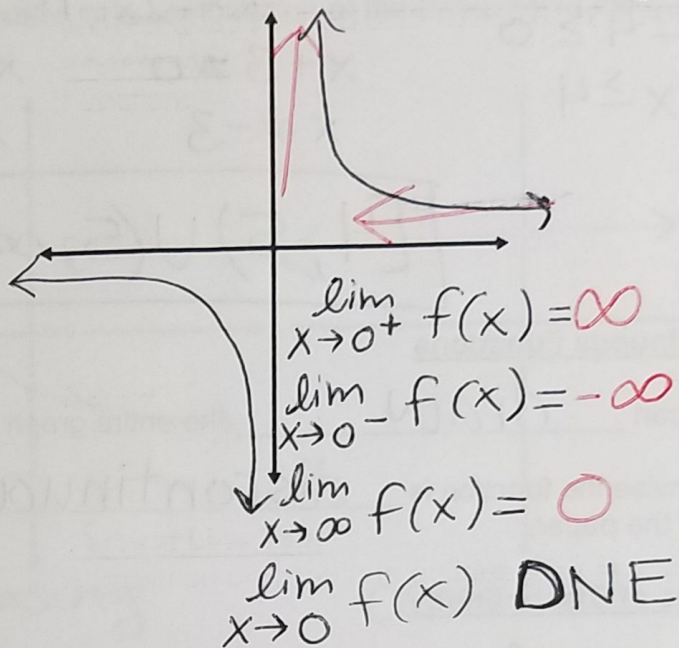 lim x→0⁺ f(x) = ∞
lim x→0⁻ f(x) = -∞
lim x→∞ f(x) = 0
lim x→0 f(x) DNE